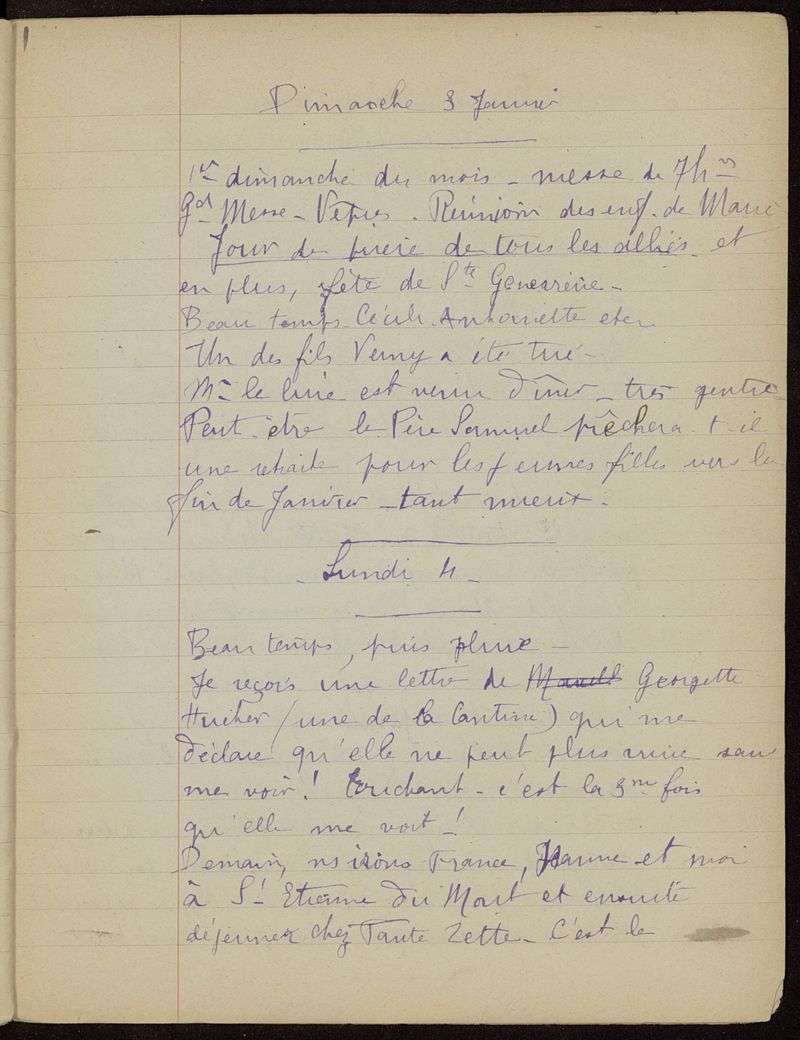 Dimanche 3 Janvier
1er dimanche du mois - messe de 7h
Gd Messe - Vêpres. Réunion des enf. de Marie
Jour de prière de tous les alliés et
en plus, fête de Ste Geneviève -
Beau temps. Cécile Antoinette
Un des fils a été tué -
Mr le Curé est venu dîner - très
Peut être le Père Samuel prêchera-t-il
une retraite pour les jeunes filles vers la
fin de Janvier - tant mieux.
- Lundi 4 -
Beau temps, puis pluie -
Je reçois une lettre de Georgette
(une de la Cantine) qui me
déclare qu'elle ne peut plus vivre sans
me voir! touchant - c'est la 3me fois
qu'elle me voit!
Demain, ns irons France, Jeanne et moi
à St Etienne du Mont et ensuite
déjeuner chez Tante Zette - C'est le